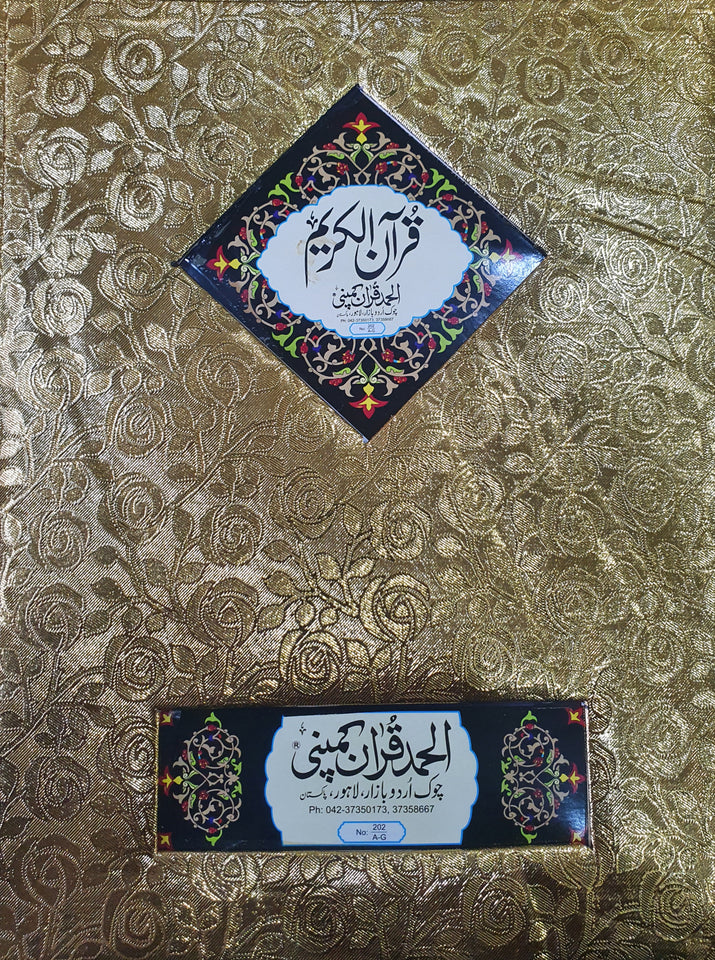 قُرآن الکریم
الحمد قُرآن کمپنی
چوک اُردو بازار، لاہور، پاکستان
PH: 042-37350173, 37358667
No:
الحمد قُرآن کمپنی ®
چوک اُردو بازار، لاہور، پاکستان
Ph: 042-37350173, 37358667
No: 202
A-G